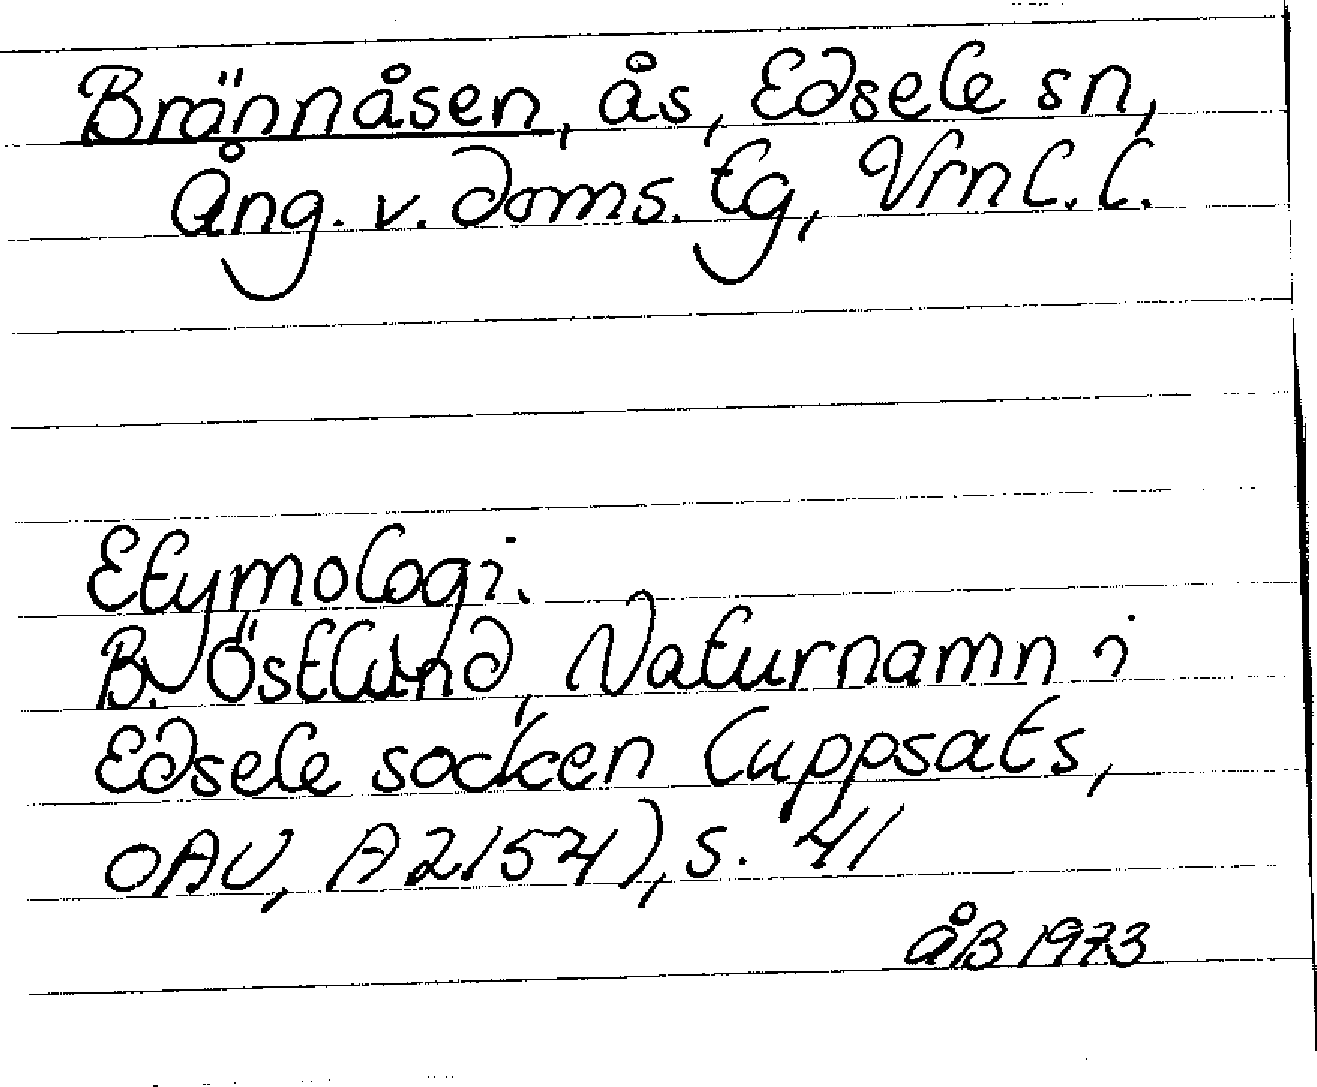 Brännåsen, ås, Edsele sn,
Ång. v. doms. tg, Vrnl.l.
Etymologi.
B. Östlund, Naturnamn i
Edsele socken (uppsats,
OAU, A2154), s. 41
åB 1973